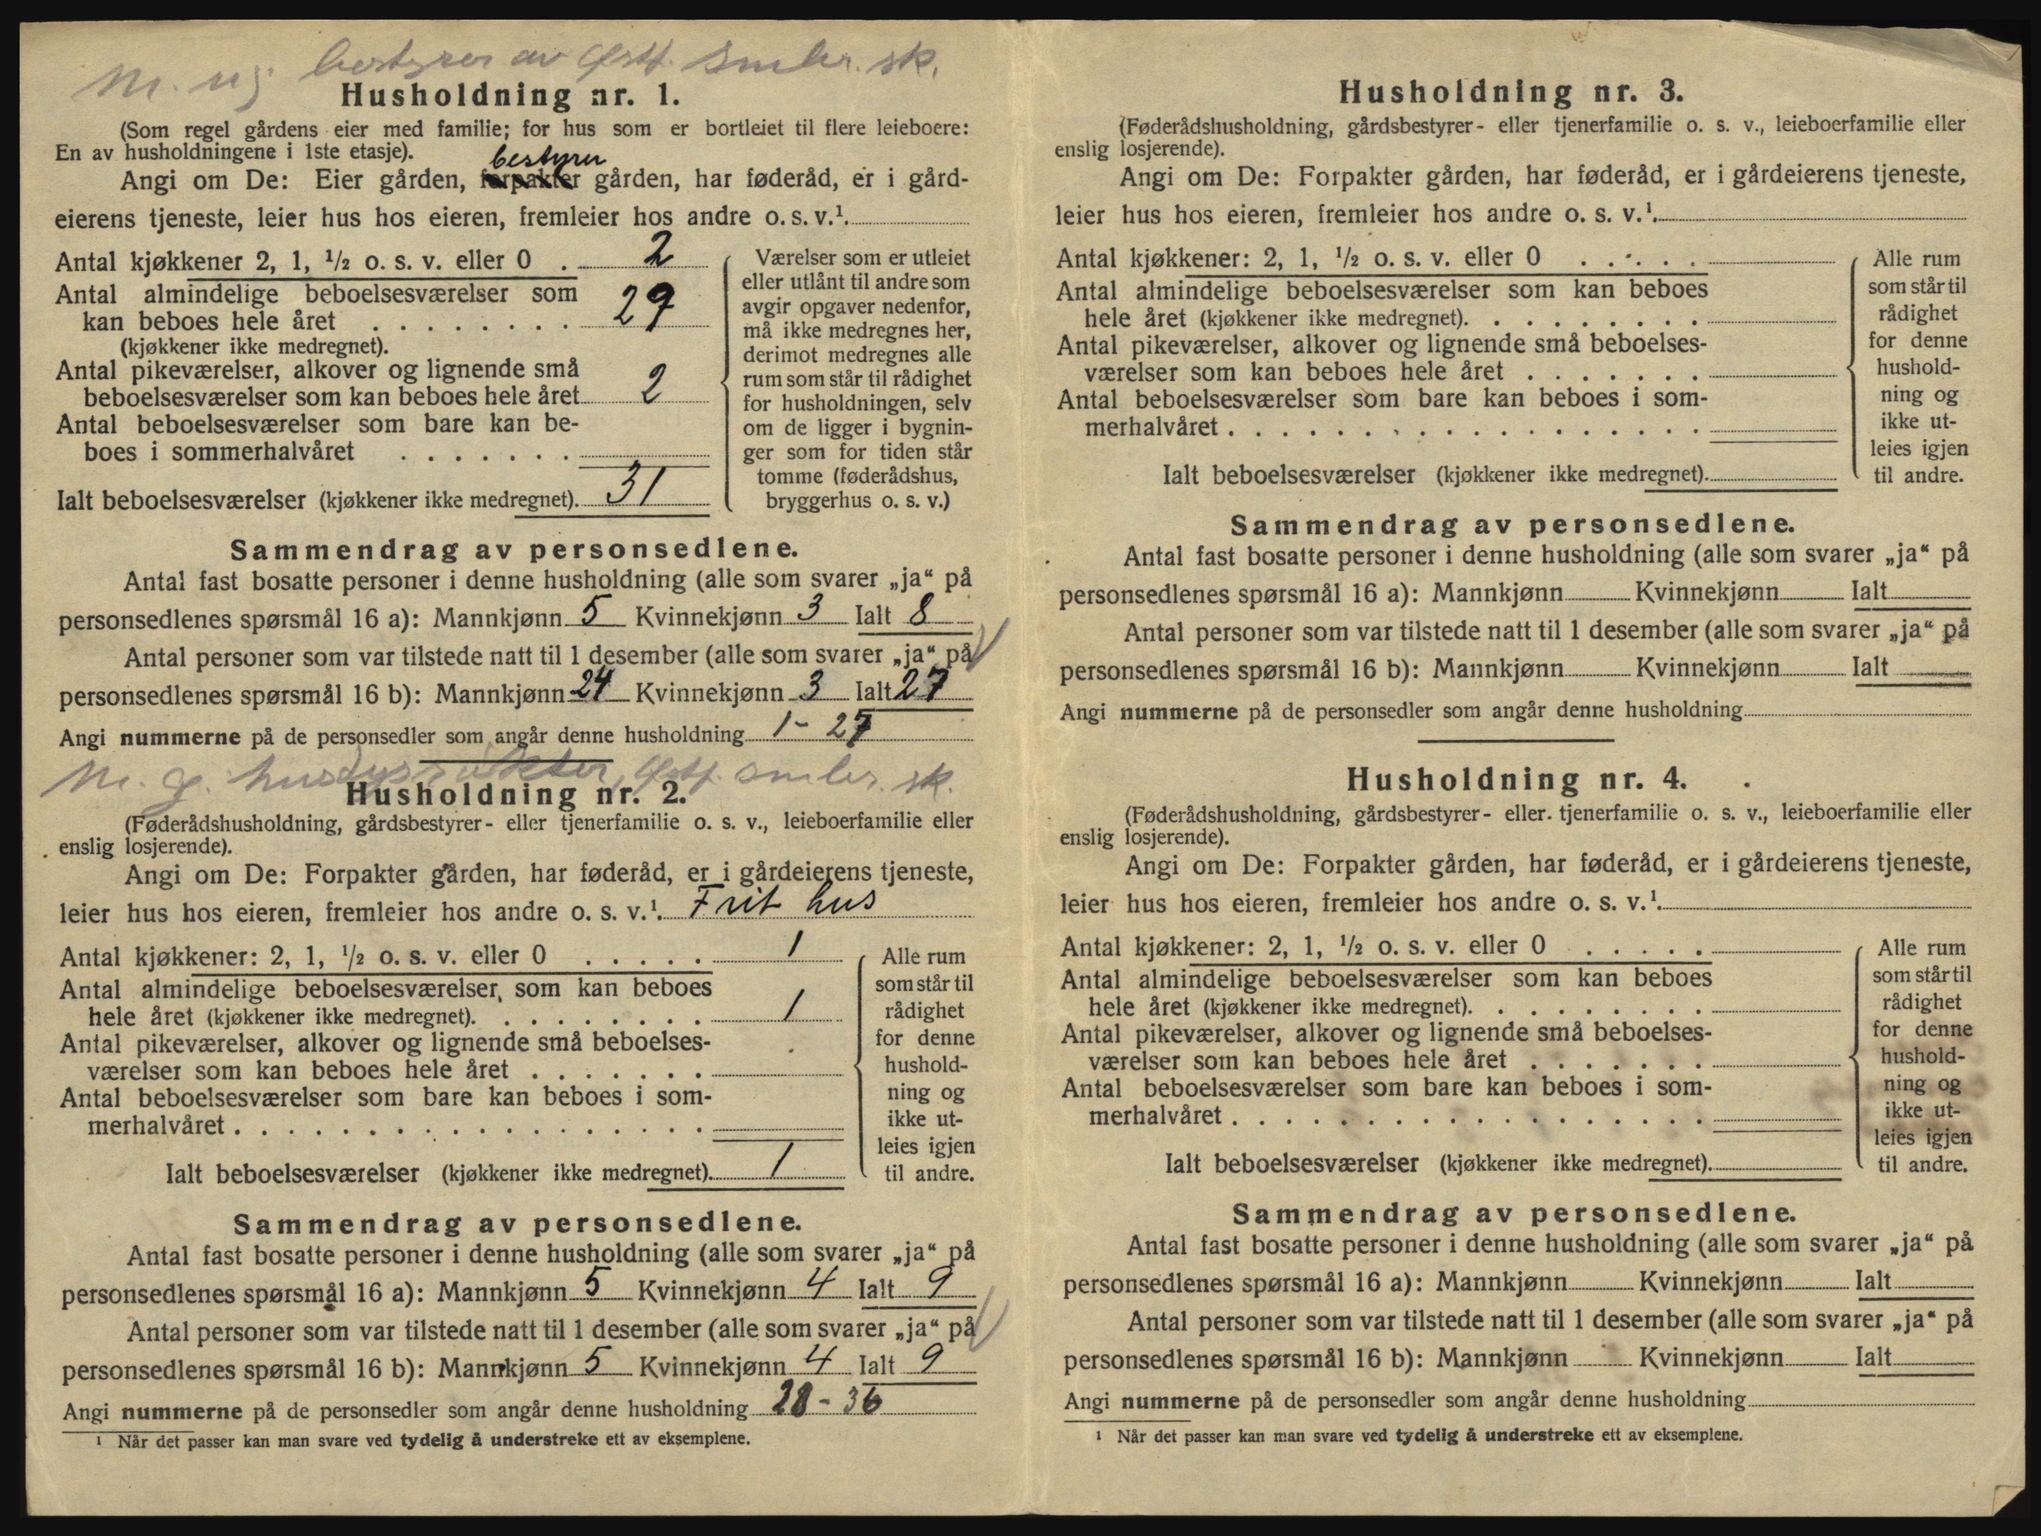 M. ug. bestyrer av Østf. Smbr. sk.
Husholdning nr. 1.
(Som regel gårdens eier med familie; for hus som er bortleiet til flere leieboere:
En av husholdningene i 1ste etasje).
bestyrer
Angi om De: Eier gården, forpakter gården, har føderåd, er i gård-
eierens tjeneste, leier hus hos eieren, fremleier hos andre o. s. v.¹.
Antal kjøkkener 2, 1, ½ o. s. v. eller 0 . 2
Antal almindelige beboelsesværelser som
kan beboes hele året . . . . . . . . 29
(kjøkkener ikke medregnet).
Antal pikeværelser, alkover og lignende små
beboelsesværelser som kan beboes hele året 2
Antal beboelsesværelser som bare kan be-
boes i sommerhalvåret . . . . . . .
Ialt beboelsesværelser (kjøkkener ikke medregnet). 31
Værelser som er utleiet
eller utlånt til andre som
avgir opgaver nedenfor,
må ikke medregnes her,
derimot medregnes alle
rum som står til rådighet
for husholdningen, selv
om de ligger i bygnin-
ger som for tiden står
tomme (føderådshus,
bryggerhus o. s. v.)
Sammendrag av personsedlene.
Antal fast bosatte personer i denne husholdning (alle som svarer „ja“ på
personsedlenes spørsmål 16 a): Mannkjønn 5 Kvinnekjønn 3 Ialt 8
Antal personer som var tilstede natt til 1 desember (alle som svarer „ja“ på
personsedlenes spørsmål 16 b): Mannkjønn 24 Kvinnekjønn 3 Ialt 27
Angi nummerne på de personsedler som angår denne husholdning 1 - 27
M. g. Østf. smbr. sk.
Husholdning nr. 2.
(Føderådshusholdning, gårdsbestyrer- eller tjenerfamilie o. s. v., leieboerfamilie eller
enslig losjerende).
Angi om De: Forpakter gården, har føderåd, er i gårdeierens tjeneste,
leier hus hos eieren, fremleier hos andre o. s. v.¹. Frit hus
Antal kjøkkener: 2, 1, ½ o. s. v. eller 0 . . . . . 1
Antal almindelige beboelsesværelser som kan beboes
hele året (kjøkkener ikke medregnet). . . . . . . . . 1
Antal pikeværelser, alkover og lignende små beboelses-
værelser som kan beboes hele året . . . . . . .
Antal beboelsesværelser som bare kan beboes i som-
merhalvåret . . . . . . . . . . . . . . . . . .
Ialt beboelsesværelser (kjøkkener ikke medregnet). 1
Alle rum
som står til
rådighet
for denne
hushold-
ning og
ikke ut-
leies igjen
til andre.
Sammendrag av personsedlene.
Antal fast bosatte personer i denne husholdning (alle som svarer „ja“ på
personsedlenes spørsmål 16 a): Mannkjønn 5 Kvinnekjønn 4 Ialt 9
Antal personer som var tilstede natt til 1 desember (alle som svarer „ja“ på
personsedlenes spørsmål 16 b): Mannkjønn 5 Kvinnekjønn 4 Ialt 9
Angi nummerne på de personsedler som angår denne husholdning 28 - 36
¹ Når det passer kan man svare ved tydelig å understreke ett av eksemplene.
Husholdning nr. 3.
(Føderådshusholdning, gårdsbestyrer- eller tjenerfamilie o. s. v., leieboerfamilie eller
enslig losjerende).
Angi om De: Forpakter gården, har føderåd, er i gårdeierens tjeneste,
leier hus hos eieren, fremleier hos andre o. s. v.¹.
Antal kjøkkener: 2, 1, ½ o. s. v. eller 0 . . . . .
Antal almindelige beboelsesværelser som kan beboes
hele året (kjøkkener ikke medregnet). . . . . . . . .
Antal pikeværelser, alkover og lignende små beboelses-
værelser som kan beboes hele året . . . . . . .
Antal beboelsesværelser som bare kan beboes i som-
merhalvåret . . . . . . . . . . . . . . . . . .
Ialt beboelsesværelser (kjøkkener ikke medregnet).
Alle rum
som står til
rådighet
for denne
hushold-
ning og
ikke ut-
leies igjen
til andre.
Sammendrag av personsedlene.
Antal fast bosatte personer i denne husholdning (alle som svarer „ja“ på
personsedlenes spørsmål 16 a): Mannkjønn Kvinnekjønn Ialt
Antal personer som var tilstede natt til 1 desember (alle som svarer „ja“ på
personsedlenes spørsmål 16 b): Mannkjønn Kvinnekjønn Ialt
Angi nummerne på de personsedler som angår denne husholdning
Husholdning nr. 4.
(Føderådshusholdning, gårdsbestyrer- eller tjenerfamilie o. s. v., leieboerfamilie eller
enslig losjerende).
Angi om De: Forpakter gården, har føderåd, er i gårdeierens tjeneste,
leier hus hos eieren, fremleier hos andre o. s. v.¹.
Antal kjøkkener: 2, 1, ½ o. s. v. eller 0 . . . . .
Antal almindelige beboelsesværelser som kan beboes
hele året (kjøkkener ikke medregnet). . . . . . . . .
Antal pikeværelser, alkover og lignende små beboelses-
værelser som kan beboes hele året . . . . . . .
Antal beboelsesværelser som bare kan beboes i som-
merhalvåret . . . . . . . . . . . . . . . . . .
Ialt beboelsesværelser (kjøkkener ikke medregnet).
Alle rum
som står til
rådighet
for denne
hushold-
ning og
ikke ut-
leies igjen
til andre.
Sammendrag av personsedlene.
Antal fast bosatte personer i denne husholdning (alle som svarer „ja“ på
personsedlenes spørsmål 16 a): Mannkjønn Kvinnekjønn Ialt
Antal personer som var tilstede natt til 1 desember (alle som svarer „ja“ på
personsedlenes spørsmål 16 b): Mannkjønn Kvinnekjønn Ialt
Angi nummerne på de personsedler som angår denne husholdning
¹ Når det passer kan man svare ved tydelig å understreke ett av eksemplene.